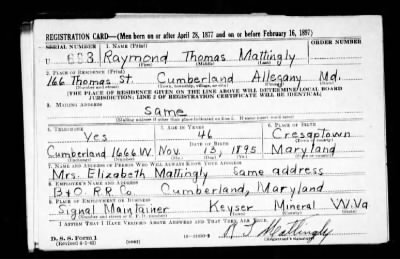 REGISTRATION CARD—(Men born on or after April 28, 1877 and on or before February 16, 1897)
SERIAL NUMBER 1. NAME (Print) ORDER NUMBER
U 683 Raymond Thomas Mattingly
(First) (Middle) (Last)
2. PLACE OF RESIDENCE (Print)
166 Thomas St. Cumberland Allegany Md.
(Number and street) (Town, township, village, or city) (County) (State)
[THE PLACE OF RESIDENCE GIVEN ON THE LINE ABOVE WILL DETERMINE LOCAL BOARD
JURISDICTION; LINE 2 OF REGISTRATION CERTIFICATE WILL BE IDENTICAL]
3. MAILING ADDRESS
Same
[Mailing address if other than place indicated on line 2. If same insert word same]
4. TELEPHONE 5. AGE IN YEARS 6. PLACE OF BIRTH
Yes 46 Cresaptown
DATE OF BIRTH
Cumberland 1666 W. Nov. 13, 1895 Maryland
(Exchange) (Number) (Mo.) (Day) (Yr.) (State or country)
7. NAME AND ADDRESS OF PERSON WHO WILL ALWAYS KNOW YOUR ADDRESS
Mrs. Elizabeth Mattingly same address
8. EMPLOYER'S NAME AND ADDRESS
B & O. R.R. Co. Cumberland, Maryland
9. PLACE OF EMPLOYMENT OR BUSINESS
Signal Maintainer Keyser Mineral W.Va
(Number and street or R. F. D. number) (Town) (County) (State)
I AFFIRM THAT I HAVE VERIFIED ABOVE ANSWERS AND THAT THEY ARE TRUE.
D. S. S. Form 1
(Revised 4-1-42) (over) R T Mattingly
(Registrant's signature)